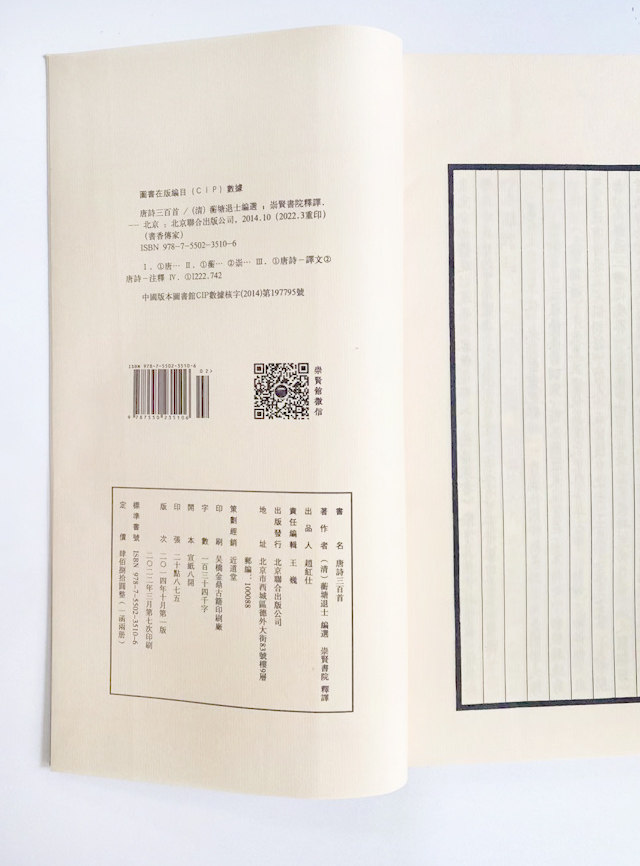 圖書在版編目(CIP)數據
唐詩三百首 /(清)蘅塘退士編選；崇賢書院釋譯.
— 北京：北京聯合出版公司, 2014.10 (2022.3重印)
(書香傳家)
ISBN 978-7-5502-3510-6
Ⅰ. ①唐… Ⅱ. ①蘅… ②崇… Ⅲ. ①唐詩－譯文②
唐詩－注釋 Ⅳ. ①I222.742
中國版本圖書館CIP數據核字(2014)第197795號
ISBN 978-7-5502-3510-6
02>
9 787550 235106
崇賢館微信
書名 唐詩三百首
著作者 (清)蘅塘退士 編選 崇賢書院 釋譯
出品人 趙紅仕
責任編輯 王巍
出版發行 北京聯合出版公司
地址 北京市西城區德外大街83號樓9層
郵編：100088
策劃經銷 近道堂
印刷 吳橋金鼎古籍印刷廠
字數 一百三十四千字
開本 宣紙八開
印張 二十點八七五
版次 二〇一四年十月第一版
二〇二二年三月第七次印刷
標準書號 ISBN 978-7-5502-3510-6
定價 肆佰捌拾圓整(一函兩册)